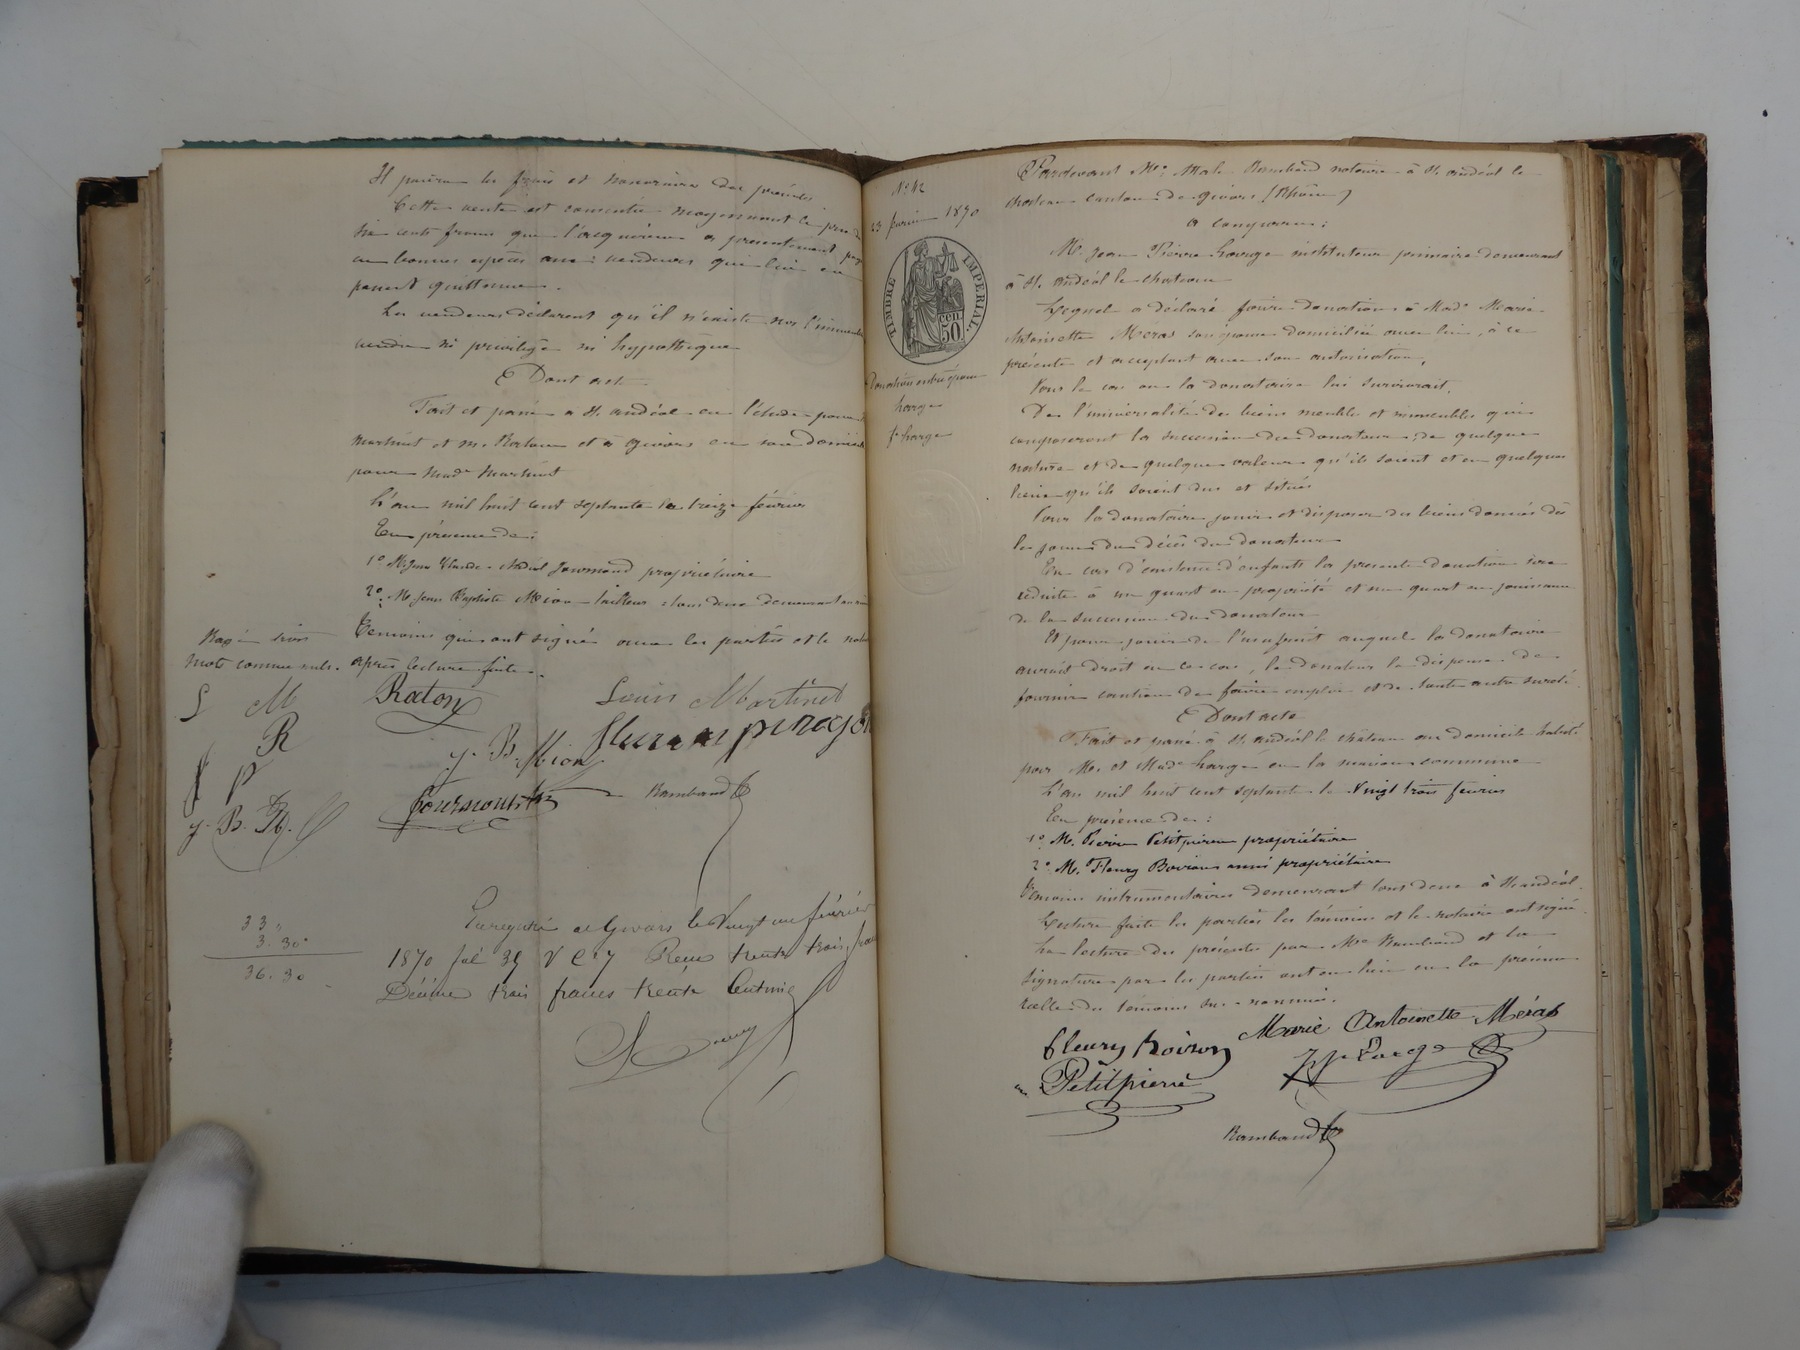 Il paiera les frais et honoraires des présentes
Cette vente est consentie moyennant le prix de
cents francs que l'acquéreur a présentement payé
en bonnes espèces aux vendeurs qui lui en
passent quittance.
Les vendeurs déclarent qu'il n'existe sur l'immeuble
vendu ni privilège ni hypothèque
Dont acte
Fait et passé à St andéol en l'étude pour
Martinet et M. et à Givors en son domicile
pour Mad. Martinet
L'an mil huit cent septante le treize février
En présence de:
1° M. Jean Claude propriétaire
2° M. Jean Baptiste Mion tailleur tous deux demeurant
Témoins qui ont signé avec les parties et le
après lecture faite.
Rayé trois
mots comme nuls.
L M
R
f p
y. B. M.
Raton
Louis Martinet
y. B. Mion
Rambaud
33 "
3. 30
36. 30
Enregistré à Givors le Vingt un février
1870 fol 39 V C 7 Reçu trente trois francs
Décime trois francs trente Centimes
N° 42
23 février 1870
TIMBRE IMPERIAL.
50 cen.
Donation entre époux
Farge
fe Farge
Pardevant Me Rambaud notaire à St andéol le
chateau canton de givors (Rhône)
a comparu:
M. Jean Pierre Farge instituteur primaire demeurant
à St. andéol le chateau
Lequel a déclaré faire donation à Made Marie
Antoinette Meras son épouse domiciliée avec lui, à ce
présente et acceptant avec son autorisation,
Pour le cas où la donataire lui survivrait.
De l'universalité des biens meubles et immeubles qui
composeront la succession du donateur de quelque
nature et de quelque valeur qu'ils soient et en quelques
lieux qu'ils soient dus et situés
Pour la donataire jouir et disposer des biens donnés dès
le jour du décès du donateur
En cas d'existence d'enfants la présente donation sera
réduite à un quart en propriété et un quart en jouissance
de la succession du donateur
Et pour jouir de l'usufruit auquel la donataire
aurait droit en ce cas, le donateur la dispense de
fournir caution de faire emploi et de toute autre sureté.
Dont acte
Fait et passé à St andéol le château au domicile habité
par M. et Made Farge en la maison commune
L'an mil huit cent septante le Vingt trois février
En présence de:
1° M. Pierre Petitpierre propriétaire
2° M. Fleury Boiron ainé propriétaire
Témoins instrumentaires demeurant tous deux à St andéol.
Lecture faite les parties les témoins et le notaire ont signé.
La lecture des présentes par Me Rambaud et la
signature par les parties ont eu lieu en la présence
réelle des témoins sus-nommés.
fleury boiron Marie Antoinette Méras
Petitpierre Farge
Rambaud